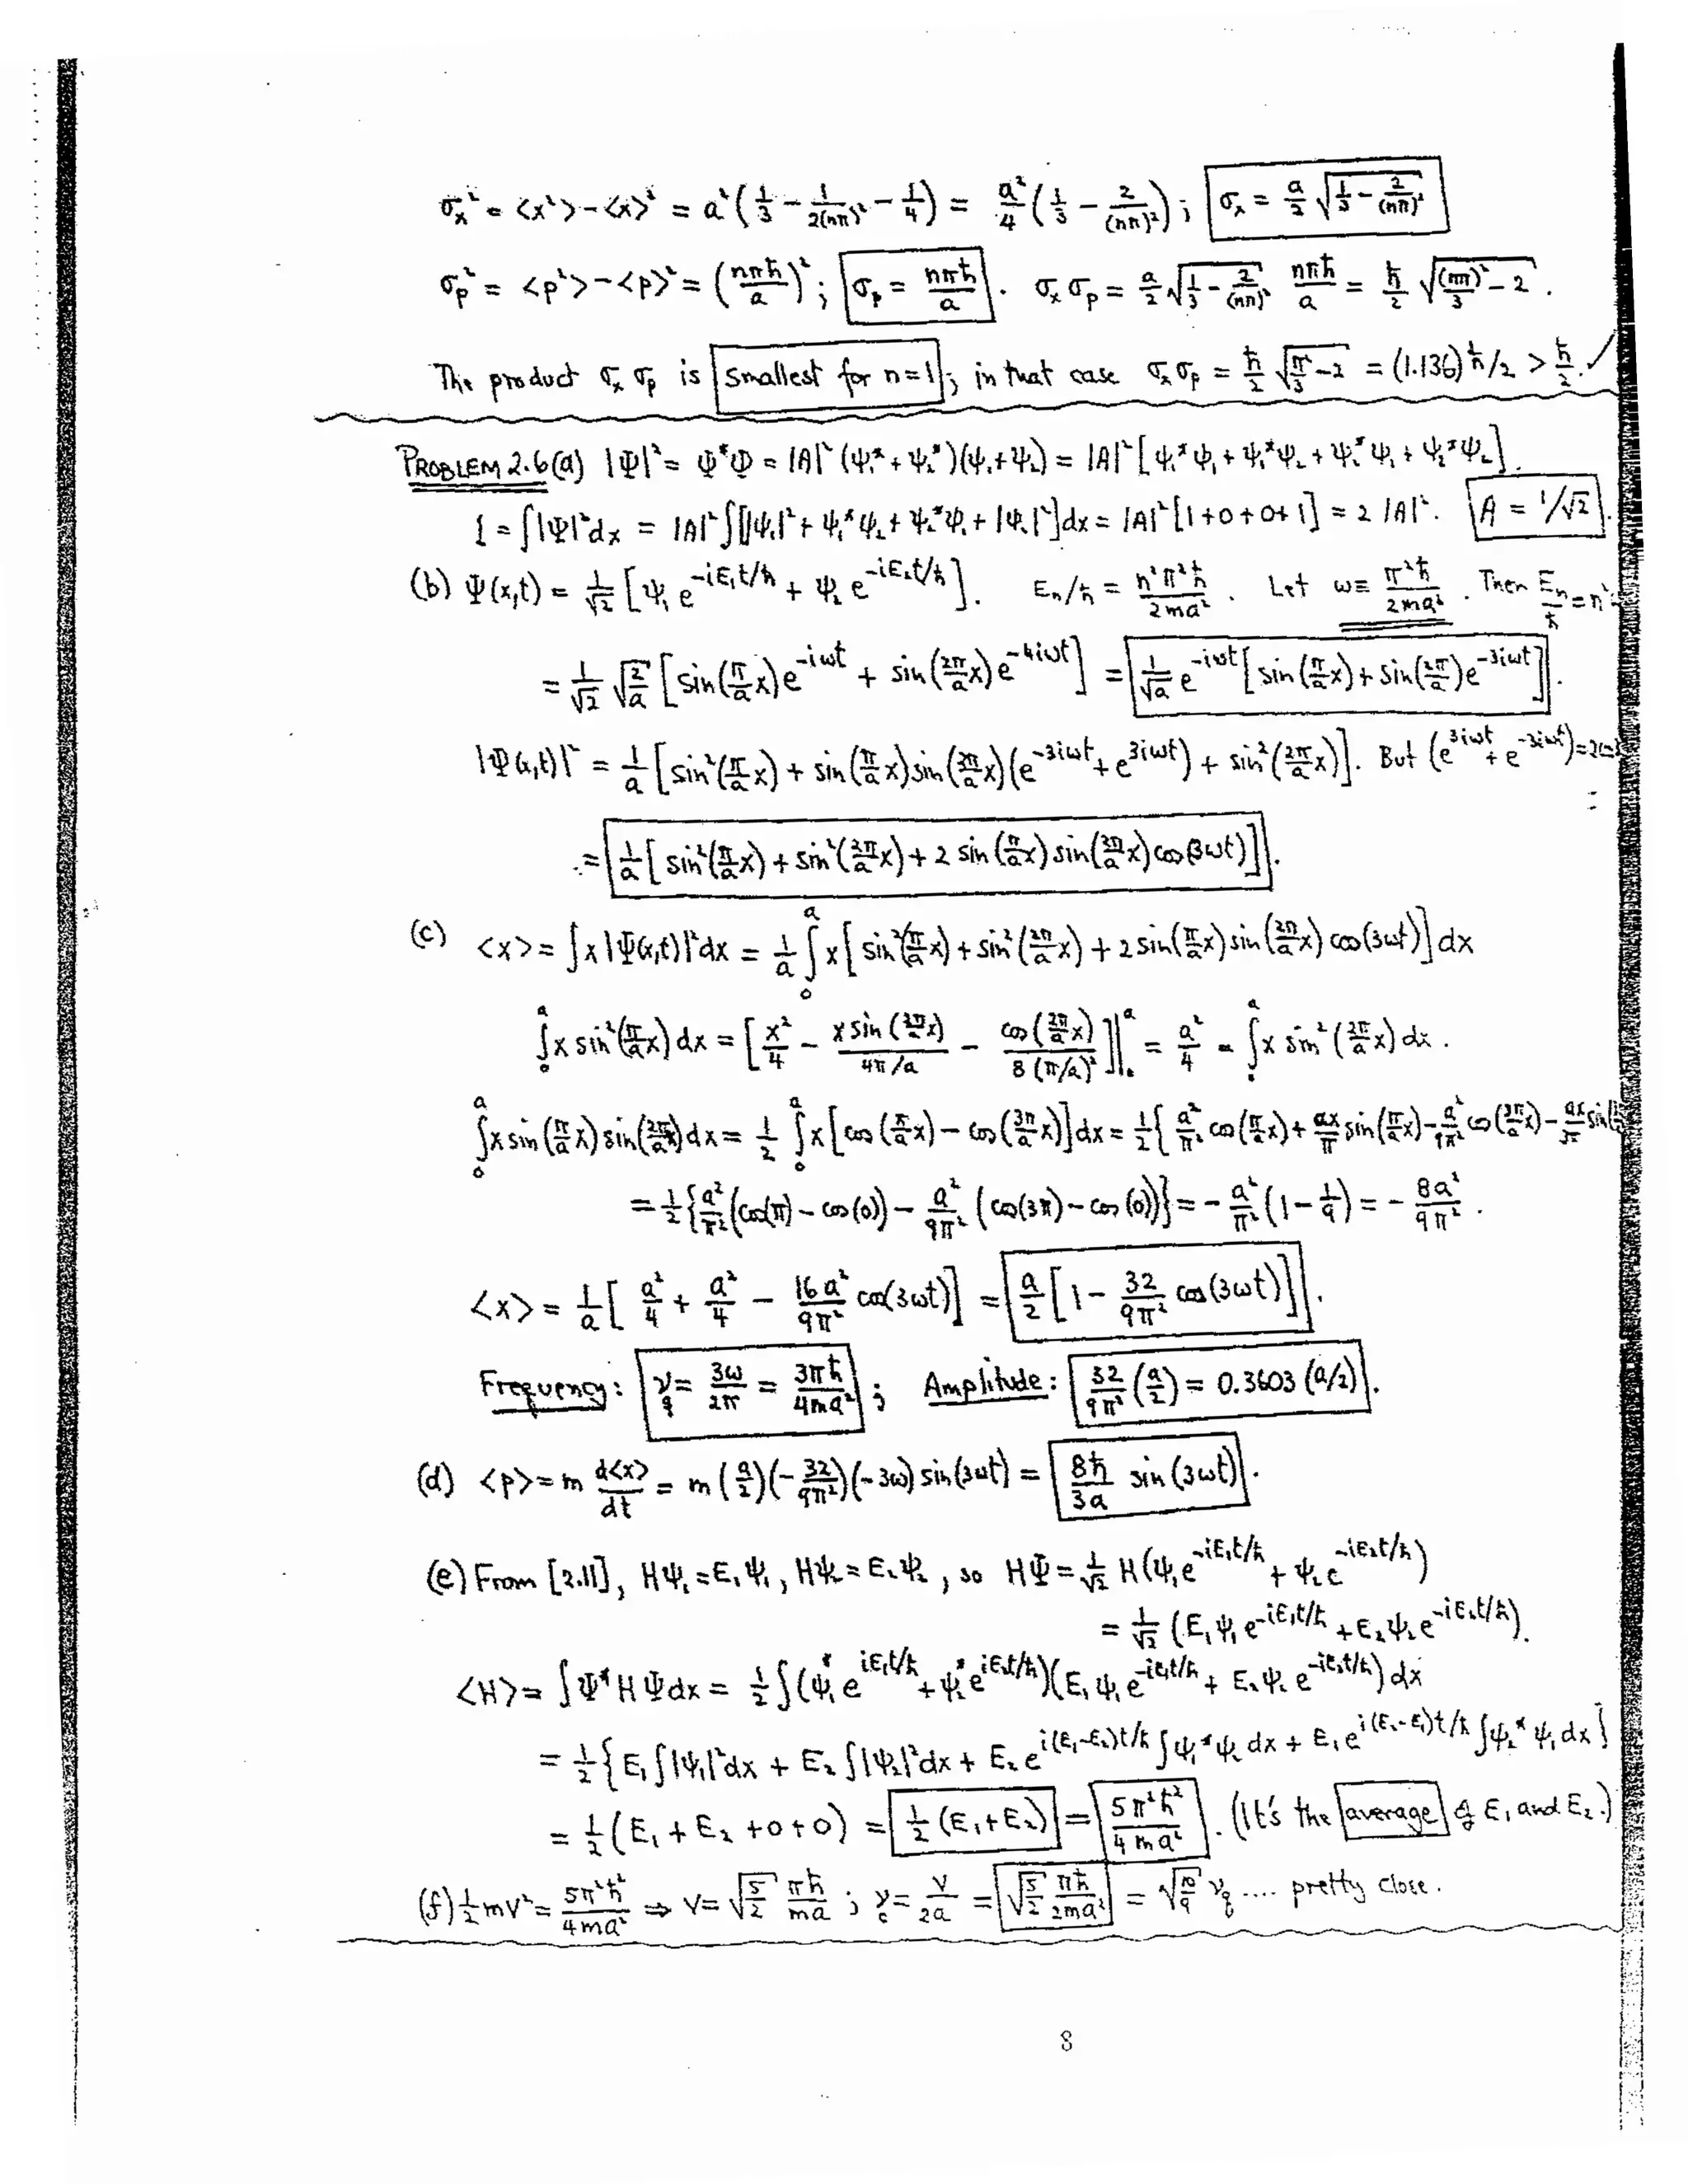 σₓ² = <x²> - <x>² = a²(1/3 - 1/2(nπ)² - 1/4) = a²/4 (1/3 - 2/(nπ)²); σₓ = a/2 √(1/3 - 2/(nπ)²)
σₚ² = <p²> - <p>² = (nπħ/a)²; σₚ = nπħ/a. σₓσₚ = a/2 √(1/3 - 2/(nπ)²) nπħ/a = ħ/2 √((nπ)²/3 - 2).
The product σₓσₚ is smallest for n=1; in that case σₓσₚ = ħ/2 √(π²/3 - 2) = (1.136)ħ/2 > ħ/2. ✓
PROBLEM 2.6(a) |Ψ|² = Ψ*Ψ = |A|²(ψ₁* + ψ₂*)(ψ₁+ψ₂) = |A|²[ψ₁*ψ₁ + ψ₁*ψ₂ + ψ₂*ψ₁ + ψ₂*ψ₂].
1 = ∫|Ψ|²dx = |A|²∫[|ψ₁|² + ψ₁*ψ₂ + ψ₂*ψ₁ + |ψ₂|²]dx = |A|²[1+0+0+1] = 2|A|². A = 1/√2.
(b) Ψ(x,t) = 1/√2 [ψ₁ e^(-iE₁t/ħ) + ψ₂ e^(-iE₂t/ħ)]. Eₙ/ħ = n²π²ħ/2ma². Let ω ≡ π²ħ/2ma². Then Eₙ/ħ = n²
= 1/√2 √(2/a) [sin(π/a x)e^(-iωt) + sin(2π/a x)e^(-4iωt)] = 1/√a e^(-iωt)[sin(π/a x) + sin(2π/a)e^(-3iωt)].
|Ψ(x,t)|² = 1/a [sin²(π/a x) + sin(π/a x)sin(2π/a x)(e^(-3iωt) + e^(3iωt)) + sin²(2π/a x)]. But (e^(3iωt) + e^(-3iωt)) = 2
= 1/a [sin²(π/a x) + sin²(2π/a x) + 2 sin(π/a x) sin(2π/a x) cos(3ωt)].
(c) <x> = ∫x|Ψ(x,t)|²dx = 1/a ∫₀ᵃ x[sin²(π/a x) + sin²(2π/a x) + 2sin(π/a x)sin(2π/a x)cos(3ωt)]dx
∫₀ᵃ x sin²(π/a x)dx = [x²/4 - x sin(2π/a x)/(4π/a) - cos(2π/a x)/8(π/a)²]|₀ᵃ = a²/4 = ∫₀ᵃ x sin²(2π/a x)dx.
∫₀ᵃ x sin(π/a x) sin(2π/a x)dx = 1/2 ∫₀ᵃ x[cos(π/a x) - cos(3π/a x)]dx = 1/2{a²/π² cos(π/a x) + ax/π sin(π/a x) - a²/9π² cos(3π/a x) - ax/3π sin(
= 1/2{a²/π²(cos(π) - cos(0)) - a²/9π² (cos(3π) - cos(0))} = -a²/π²(1 - 1/9) = -8a²/9π².
<x> = 1/a [a²/4 + a²/4 - 16a²/9π² cos(3ωt)] = a/2 [1 - 32/9π² cos(3ωt)].
Frequency: ν_q = 3ω/2π = 3πħ/4ma²; Amplitude: 32/9π² (a/2) = 0.3603 (a/2).
(d) <p> = m d<x>/dt = m(a/2)(-32/9π²)(-3ω)sin(3ωt) = 8ħ/3a sin(3ωt).
(e) From [2.11], Hψ₁ = E₁ψ₁, Hψ₂ = E₂ψ₂, so HΨ = 1/√2 H(ψ₁e^(-iE₁t/ħ) + ψ₂e^(-iE₂t/ħ))
= 1/√2 (E₁ψ₁e^(-iE₁t/ħ) + E₂ψ₂e^(-iE₂t/ħ)).
<H> = ∫Ψ*HΨdx = 1/2 ∫(ψ₁*e^(iE₁t/ħ) + ψ₂*e^(iE₂t/ħ))(E₁ψ₁e^(-iE₁t/ħ) + E₂ψ₂e^(-iE₂t/ħ))dx
= 1/2{E₁∫|ψ₁|²dx + E₂∫|ψ₂|²dx + E₂e^(i(E₁-E₂)t/ħ)∫ψ₁*ψ₂dx + E₁e^(i(E₂-E₁)t/ħ)∫ψ₂*ψ₁dx}
= 1/2(E₁ + E₂ + 0 + 0) = 1/2(E₁+E₂) = 5π²ħ²/4ma². (It's the average of E₁ and E₂.)
(f) 1/2 mv² = 5π²ħ²/4ma² ⇒ v = √(5/2) πħ/ma; ν_c = v/2a = √(5/2) πħ/2ma² = √(10/9) ν_q .... pretty close.
8